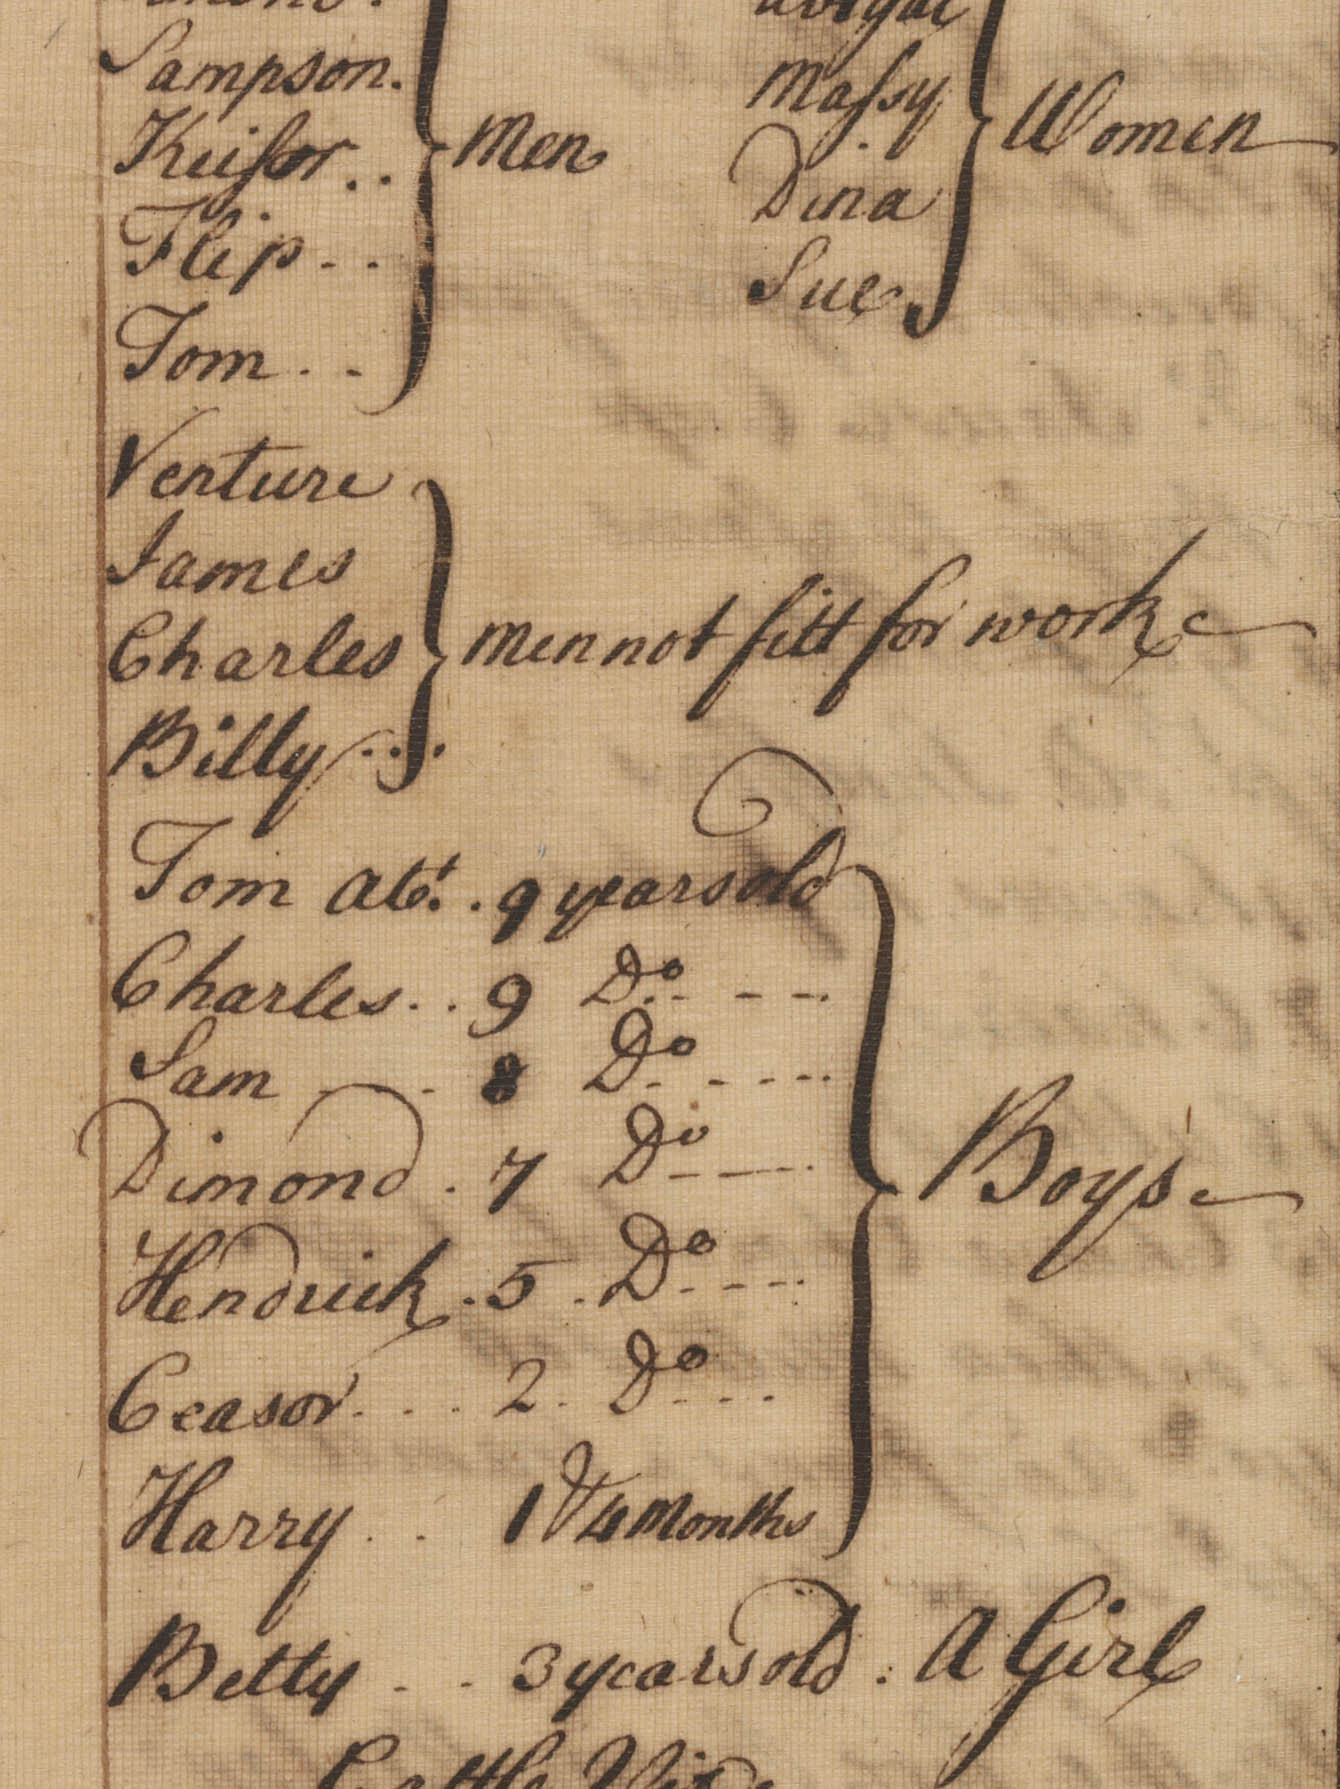 Sampson.
Keissor..
Flip - -
Tom . . -
} Men
Abigal
Massy
Dina
Sue
} Women
Venture
James
Charles
Billy . . .
} Men not fitt for work
Tom abt. . 9 years old
Charles . . 9 Do - - -
Sam - - 8 Do - - - -
Dimond . 7 Do - - -
Hendrick . 5 . Do - - -
Ceasor . . . 2 . Do - - -
Harry . . 1 & 4 Months
} Boys
Betty . . 3 years old . A Girl
Cattle Vizt